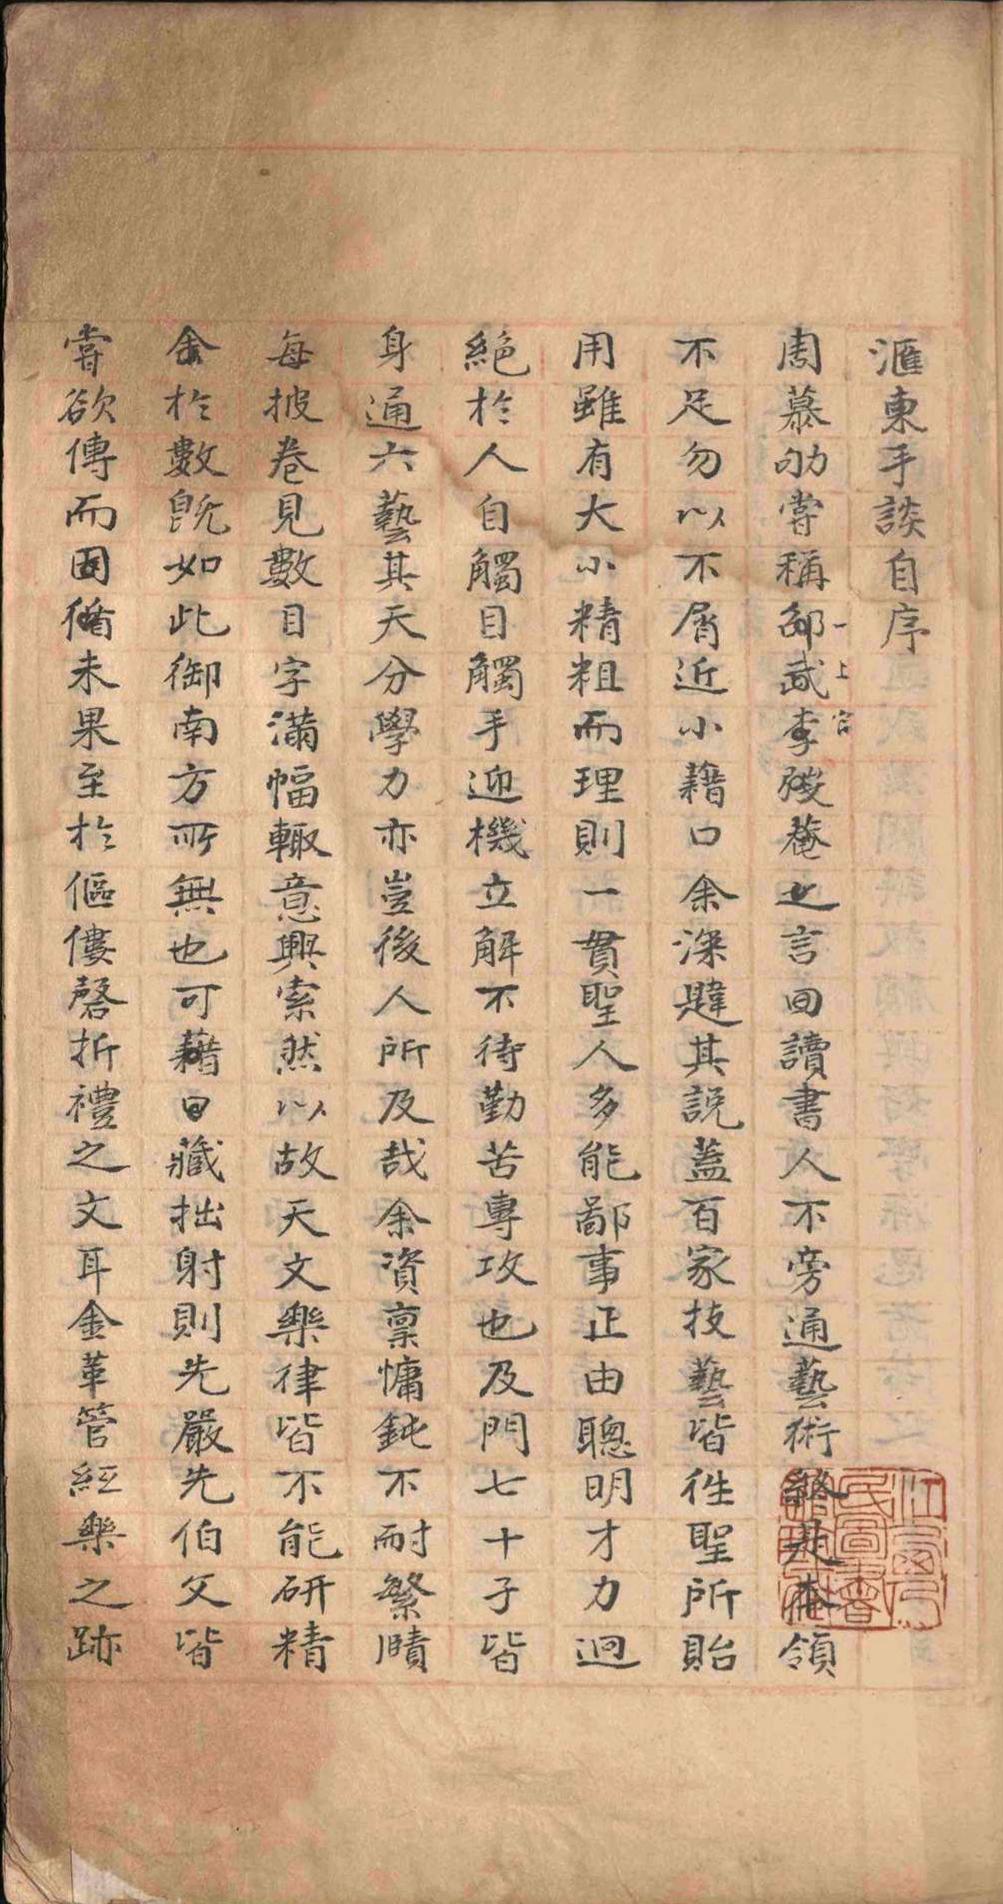 滙東手談自序
周慕劬嘗稱邵武李殘菴之言曰讀書人不旁通藝術終是本領
一上官
不足勿以不屑近小藉口余深韙其說蓋百家技藝皆往聖所貽
用雖有大小精粗而理則一貫聖人多能鄙事正由聰明才力迥
絕於人自觸目觸手迎機立解不待勤苦專攻也及門七十子皆
身通六藝其天分學力亦豈後人所及哉余資稟慵鈍不耐繁賾
每披卷見數目字滿幅輙意興索然以故天文樂律皆不能研精
余於數旣如此御南方所無也可藉口藏拙射則先嚴先伯父皆
嘗欲傳而因循未果至於傴僂磬折禮之文耳金革管經樂之跡